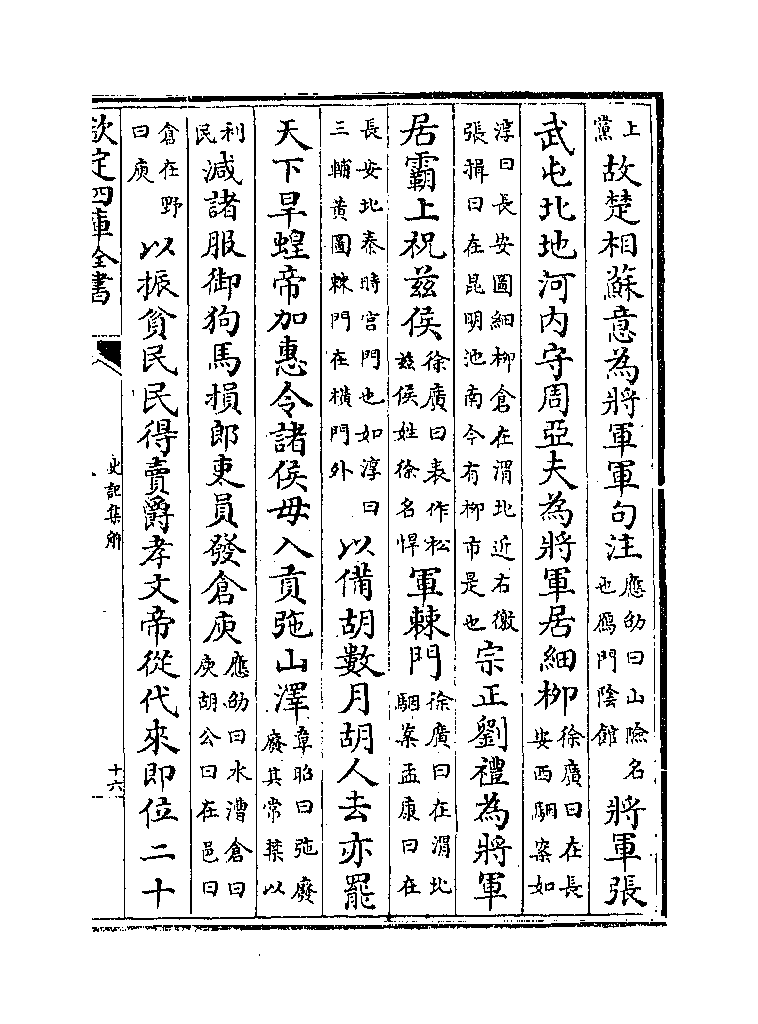 上黨故楚相蘇意為將軍軍句注應劭曰山險名也鴈門陰館將軍張
武屯北地河内守周亞夫為將軍居細柳徐廣曰在長安西駰案如
淳曰長安圖細柳倉在渭北近右徼張揖曰在昆明池南今有柳市是也宗正劉禮為將軍
居霸上祝兹侯徐廣曰表作松兹侯姓徐名悍軍棘門徐廣曰在渭北駰案孟康曰在
長安北秦時宫門也如淳曰三輔黄圖棘門在横門外以備胡數月胡人去亦罷
天下旱蝗帝加惠令諸侯毋入貢弛山澤韋昭曰弛廢廢其常禁以
利民減諸服御狗馬損郎吏員發倉庾應劭曰水漕倉曰庾胡公曰在邑曰
倉在野曰庾以振貧民民得賣爵孝文帝從代來即位二十
欽定四庫全書
史記集解
十六